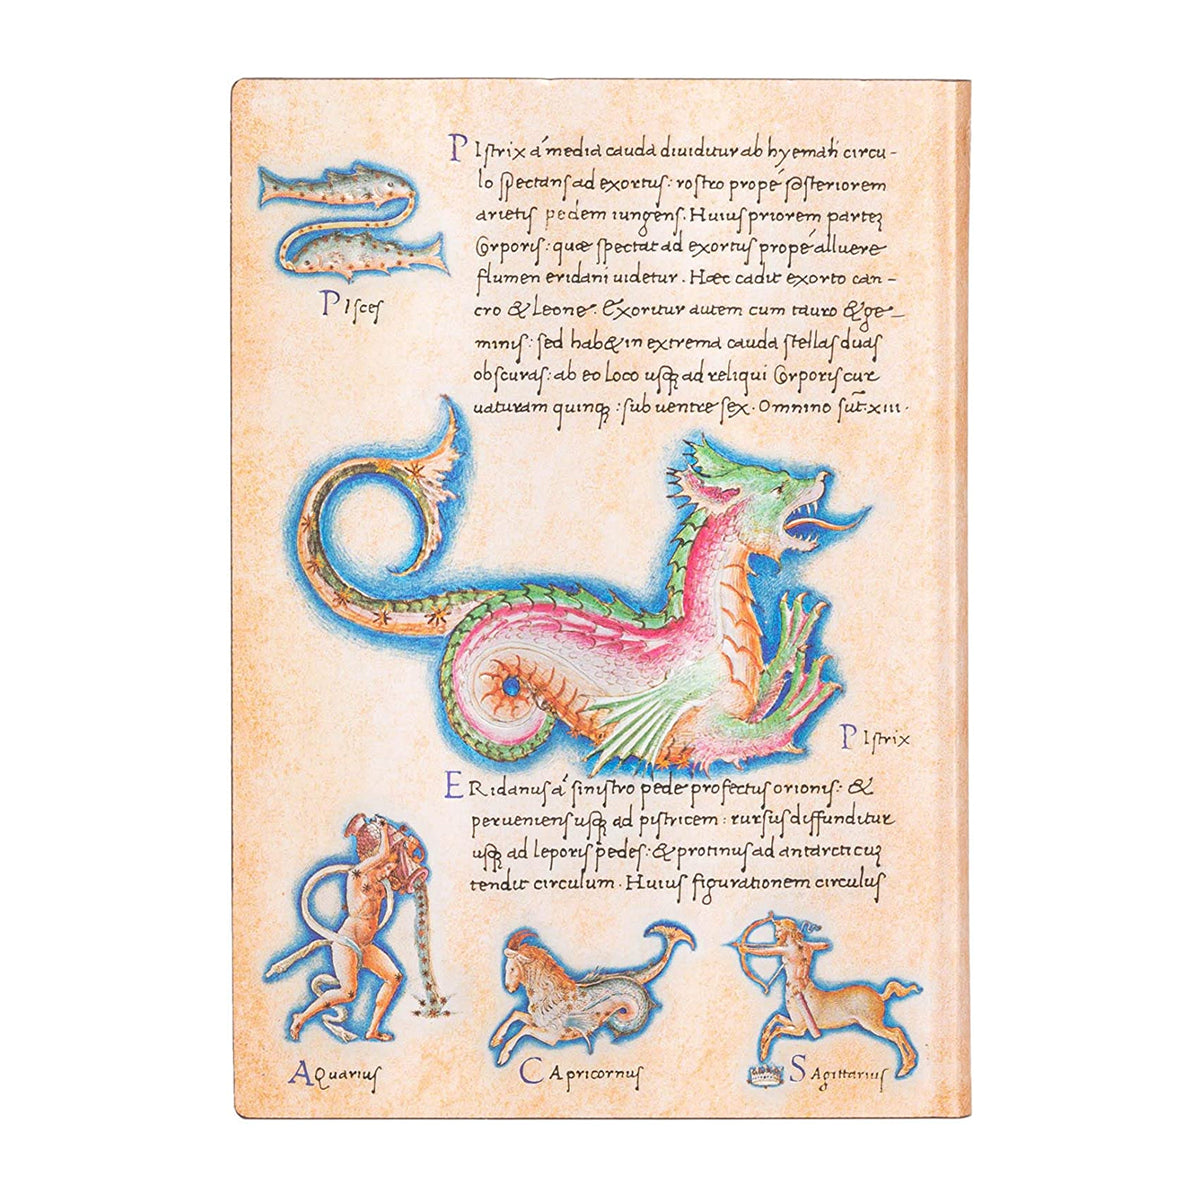 PIstrix á media cauda diuiditur ab hyemali circu-
lo spectans ad exortus: rostro propé posteriorem
arietis pedem iungens. Huius priorem partẽ
Corporis: quæ spectat ad exortus propé alluere
flumen eridani uidetur. Hæc cadit exorto can-
cro & Leone. Exoritur autem cum tauro & ge-
minis: sed hab& in extrema cauda stellas duas
obscuras: ab eo loco usq; ad reliqui Corporis cur
uaturam quinq;: sub uentre sex. Omnino sũt. xiii.
PIsces
PIstrix
ERidanus á sinistro pede profectus orionis: &
perueniens usq; ad pistricem: rursus diffunditur
usq; ad leporis pedes: & protinus ad antarcticũ
tendit circulum. Huius figurationem circulus
AQuarius
CApricornus
SAgittarius